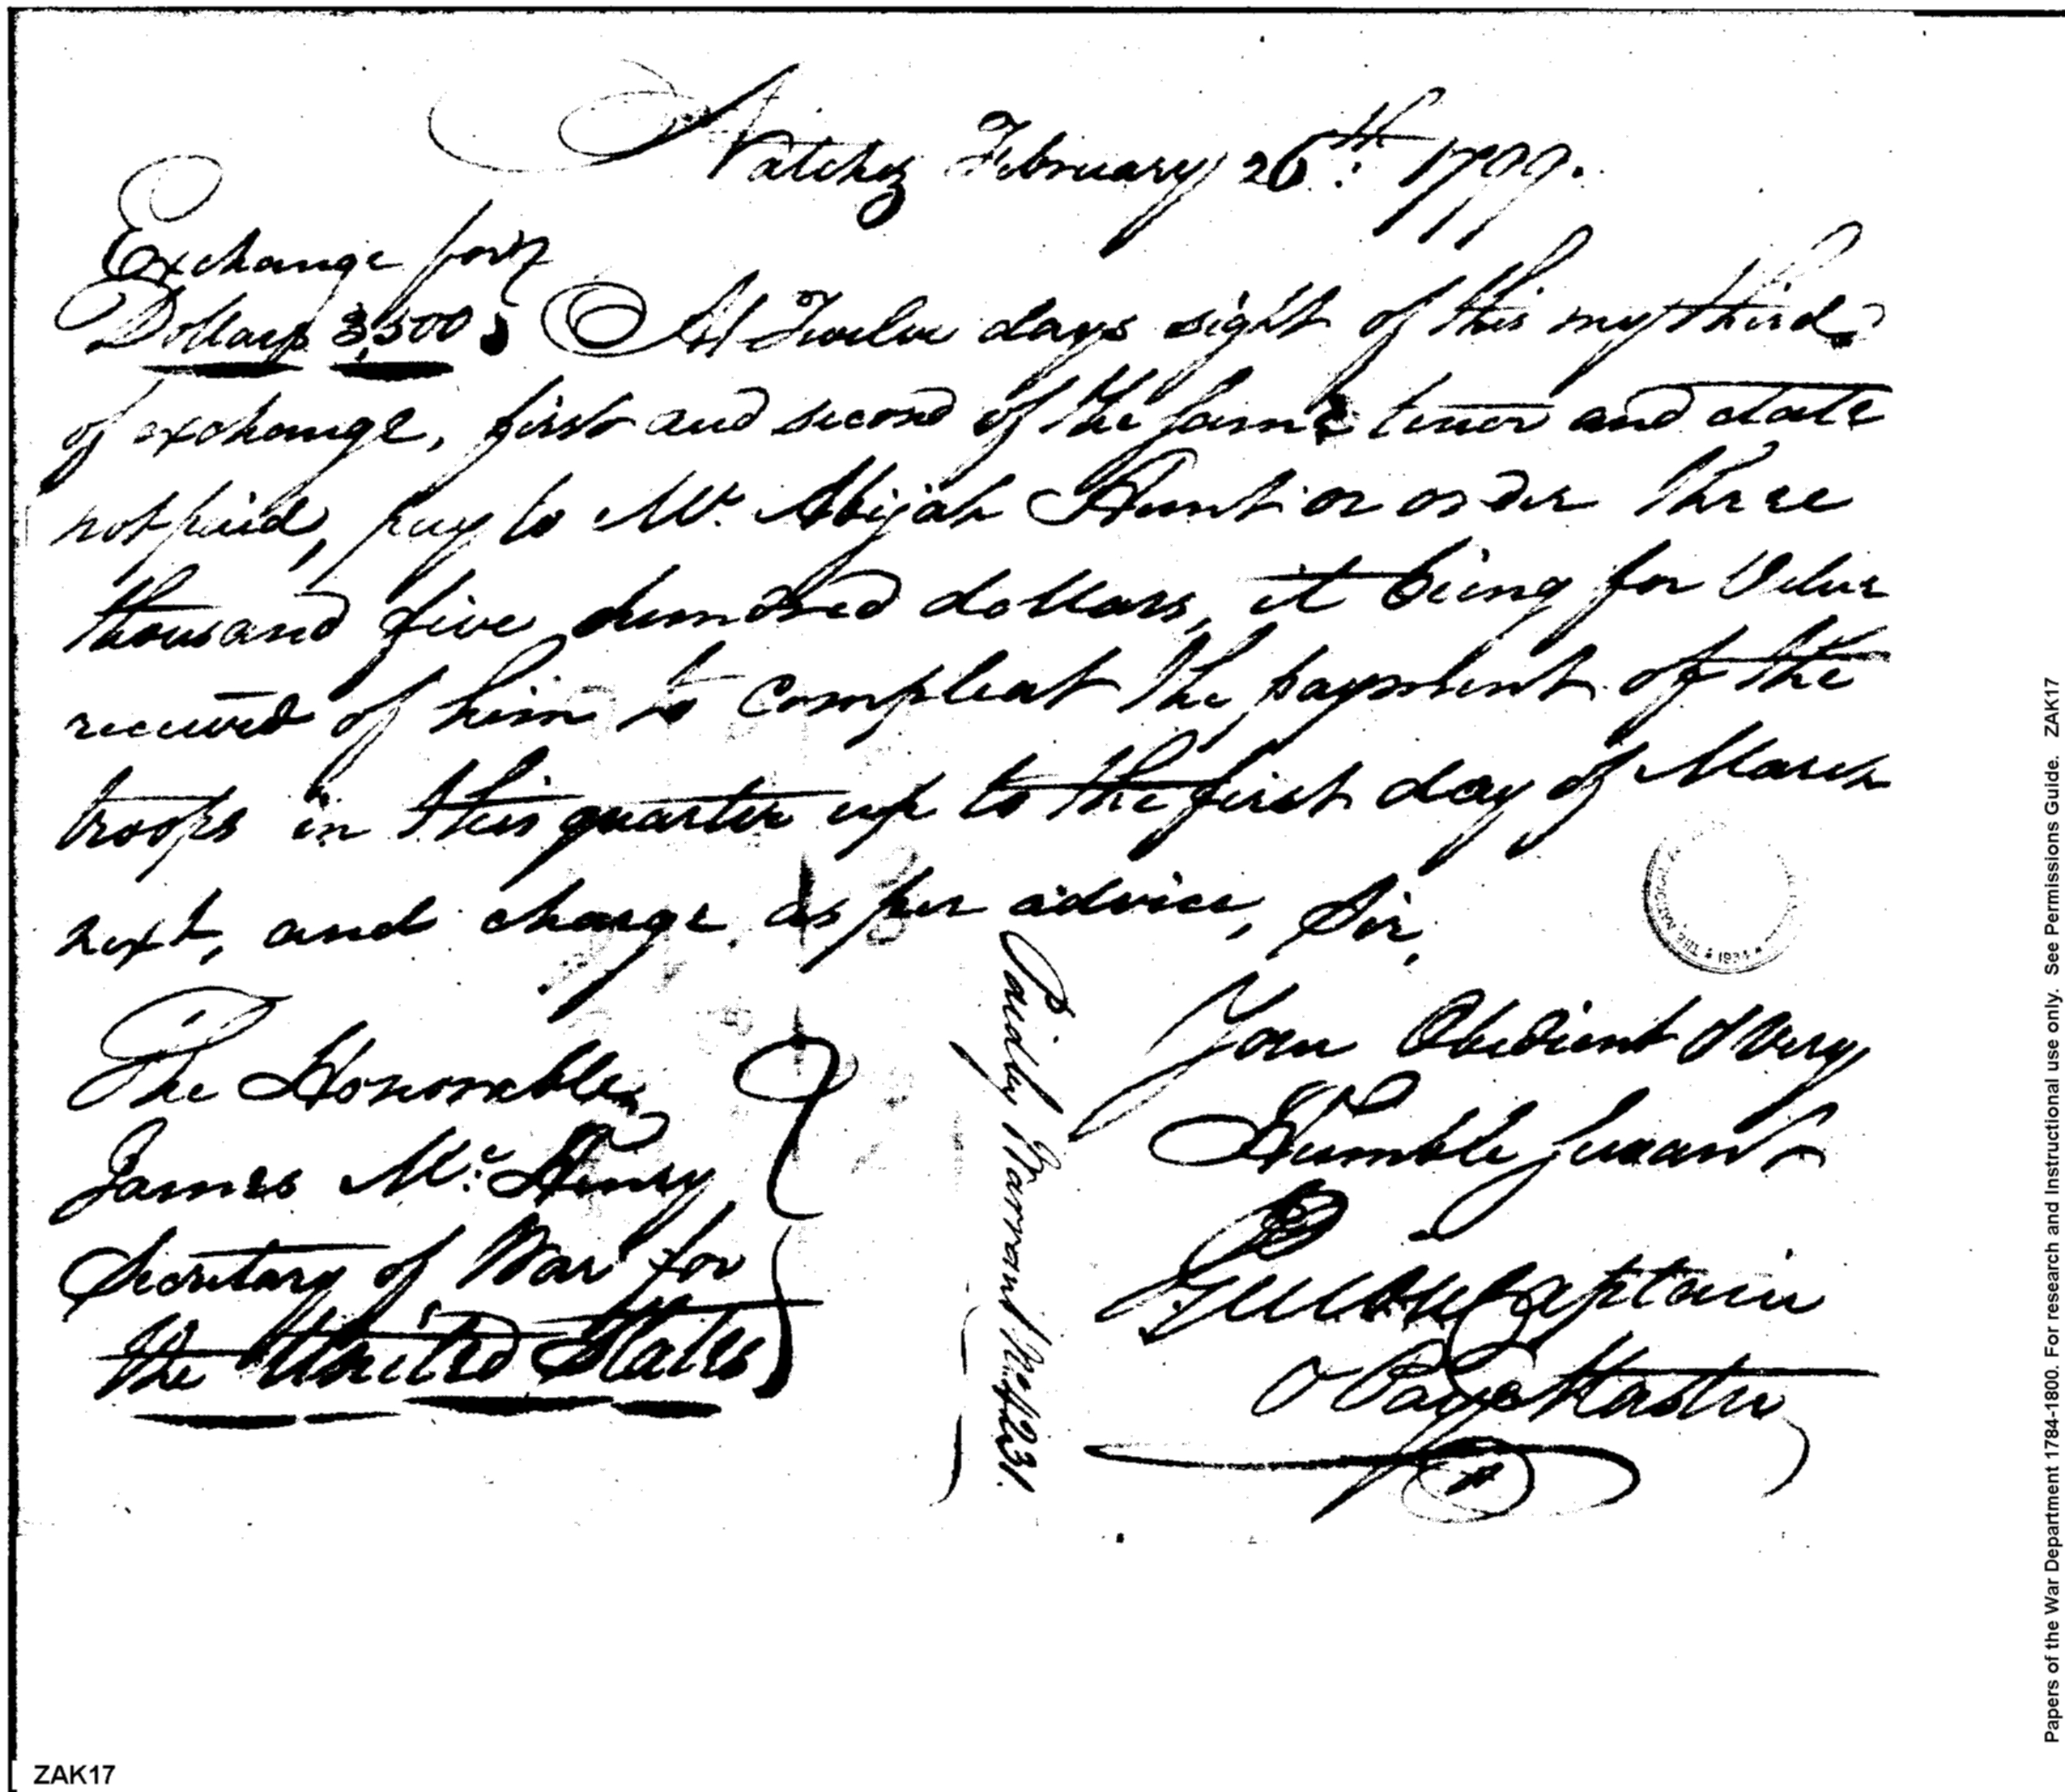 Natchez February 26th. 1799.
Exchange for
Dollars 3,500
At Twelve days sight of this my third
of exchange, first and second of the same tenor and date
not paid, pay to Mr. Abijah Hunt or order three
thousand five hundred dollars, it being for Value
received of him to compleat the payment of the
troops in this quarter up to the first day of March
next, and charge as per advice, Sir,
Your Obedient & Very
Humble Servant
Captain
& Pay Master
The Honorable
James Mc. Henry
Secretary of War for
the United States
Paid by Warrant No. 4231.
ZAK17
Papers of the War Department 1784-1800. For research and Instructional use only. See Permissions Guide. ZAK17